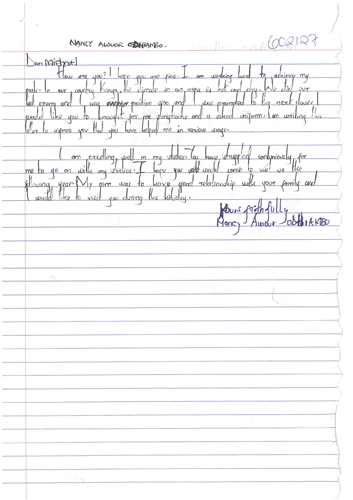 NANCY AWUOR ODHIAMBO. 602127
Dear Michael
How are you? I hope you are fine. I am working hard to achieve my
goals. In our country Kenya, the climate in our area is hot and dry. We did our
last exams and I was position one and I was promoted to the next class. I
would like you to brought for me playshoes and a school uniform. I am writing this
letter to express you that you have helped me in various ways.
I am excelling well in my studies. You have struggled continuously for
me to go on with my studies. I hope you would come to visit we the
following year. My aim was to have good relationship with your family and
I would like to visit you during this holiday.
Yours faithfully
Nancy Awuor ODHIAMBO